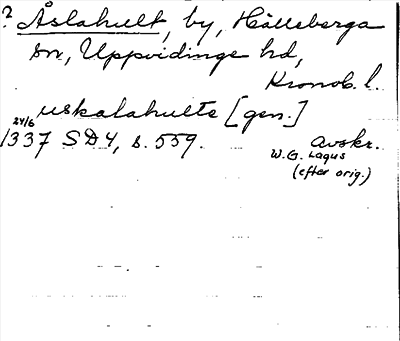 ? Åslahult, by, Hällsberga
sn, Uppvidinge hd,
Kronob. l.
uskalahulte [gen.]
24/6
1337 SD4, s. 559. avskr.
W. G. Lagus
(efter orig.)